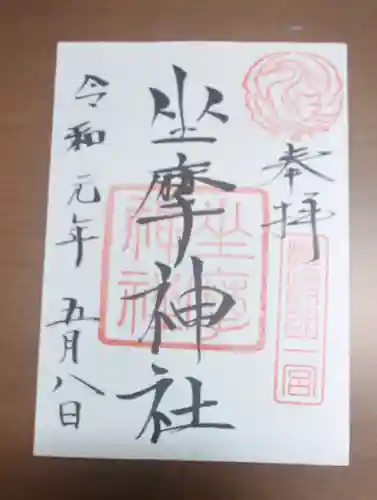 奉拝
摂津国一宮
坐摩神社
坐摩神社
令和元年 五月八日